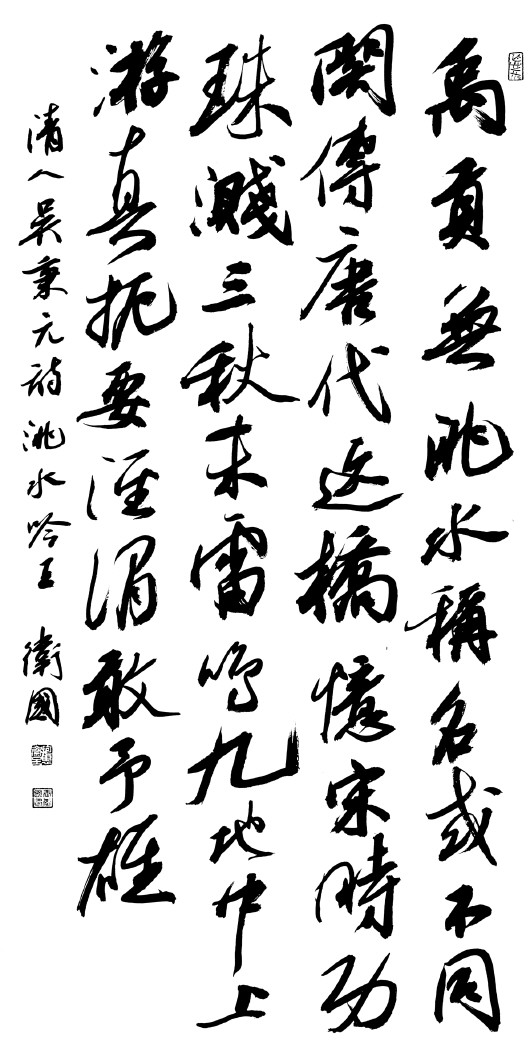 禹貢無洮水稱名或不同
関傳唐代迹橋憶宋時功
珠濺三秋末雷鳴九地中上
游真扼要涇渭敢予雄
清人吳秉元詩洮水吟王衛國